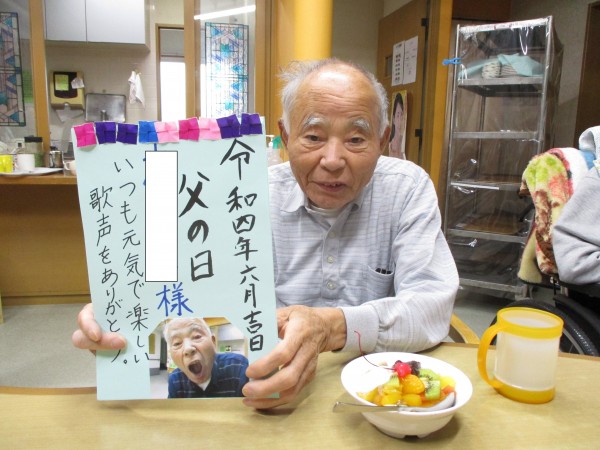 令和四年六月吉日
父の日
様
いつも元気で楽しい
歌声をありがとう。